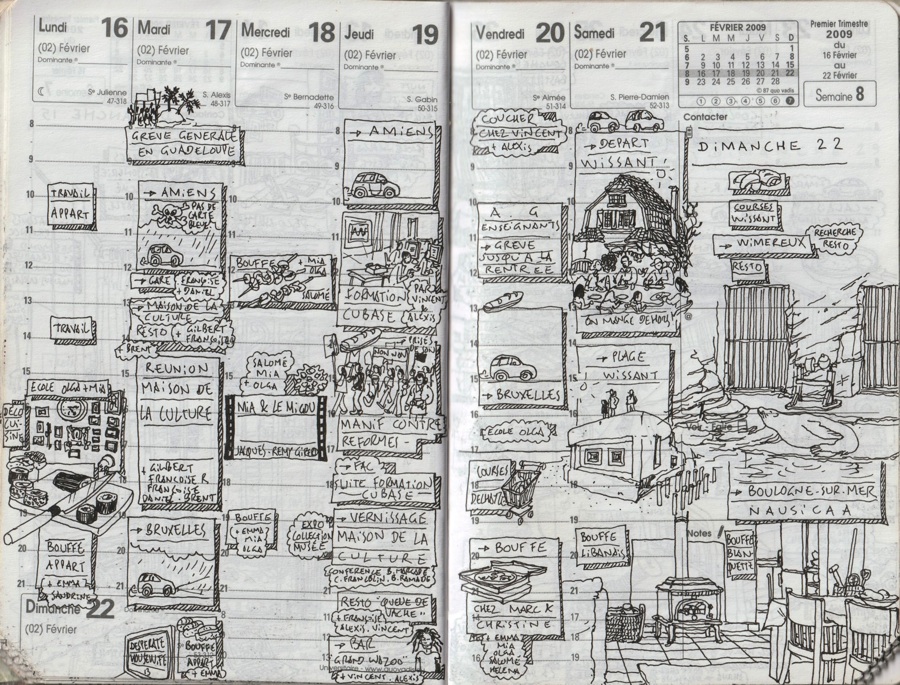 Lundi 16
(02) Février
Dominante
Ste Julienne
47-318
Mardi 17
(02) Février
Dominante
S. Alexis
48-317
Mercredi 18
(02) Février
Dominante
Ste Bernadette
49-316
Jeudi 19
(02) Février
Dominante
S. Gabin
50-315
Vendredi 20
(02) Février
Dominante
Ste Aimée
51-314
Samedi 21
(02) Février
Dominante
S. Pierre-Damien
52-313
FÉVRIER 2009
S. L M M J V S D
5 1
6 2 3 4 5 6 7 8
7 9 10 11 12 13 14 15
8 16 17 18 19 20 21 22
9 23 24 25 26 27 28
© 87 quo vadis
1 2 3 4 5 6 7
Premier Trimestre
2009
du
16 Février
au
22 Février
Semaine 8
Contacter
TRAVAIL
APPART
TRAVAIL
ECOLE OLGA + MIA
DÉCO
CUI-
SINE
BOUFFE
APPART
+ EMMA
SANDRINE
Dimanche 22
(02) Février
GREVE GENERALE
EN GUADELOUPE
→ AMIENS
PAS DE
CARTE
BLEUE
→ GARE
FRANÇOISE
+ DANIEL
→ MAISON DE LA
CULTURE
RESTO + GILBERT
FRANÇOISE
BRENT
REUNION
MAISON DE
LA CULTURE
+ GILBERT
FRANÇOISE R
FRANÇOISE
DANIEL. BRENT
→ BRUXELLES
DESPERATE
HOUSEWIFE
BOUFFE
APPART
+ EMMA
BOUFFE
+ MIA
OLGA
SALOMÉ
SALOMÉ
MIA
+ OLGA
MIA & LE MIGOU
JACQUES-REMY GIRERD
BOUFFE
+ EMMA
MIA
OLGA
EXPO
COLLECTION
MUSÉE
→ AMIENS
FORMATION
CUBASE
PAR
VINCENT
ALEXIS
→ PRISES
DE SON
NON NON
MANIF CONTRE
REFORMES
→ FAC
SUITE FORMATION
CUBASE
→ VERNISSAGE
MAISON DE LA
CULTURE
CONFERENCE B. MARCADÉ
C. FRANCBLIN. B. RAMADE
RESTO "QUEUE DE
VACHE"
+ FRANÇOISE
ALEXIS. VINCENT
→ BAR
"GRAND WAZOO"
+ VINCENT. ALEXIS
COUCHER
CHEZ VINCENT
+ ALEXIS
A G
ENSEIGNANTS
→ GREVE
JUSQU'A LA
RENTREE
→ BRUXELLES
ECOLE OLGA
COURSES
DELHAIZE
→ BOUFFE
CHEZ MARC &
CHRISTINE
+ EMMA
MIA
OLGA
SALOMÉ
HELENA
→ DEPART
WISSANT!
ON MANGE DEHORS!
→ PLAGE
WISSANT
BOUFFE
LIBANAIS
Notes
BOUFFE
BLAN
QUETTE
DIMANCHE 22
COURSES
WISSANT
→ WIMEREUX
RECHERCHE
RESTO
RESTO
→ BOULOGNE-SUR-MER
NAUSICAA